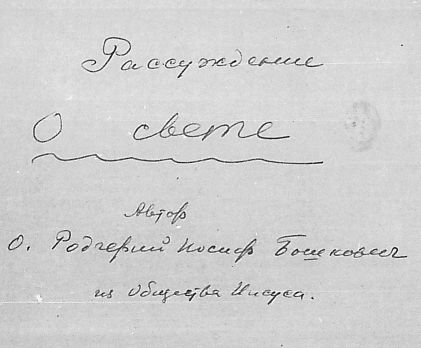 Рассуждение
О свете
Автор
О. Роджерий Иосиф Бошкович
из Общества Иисуса.